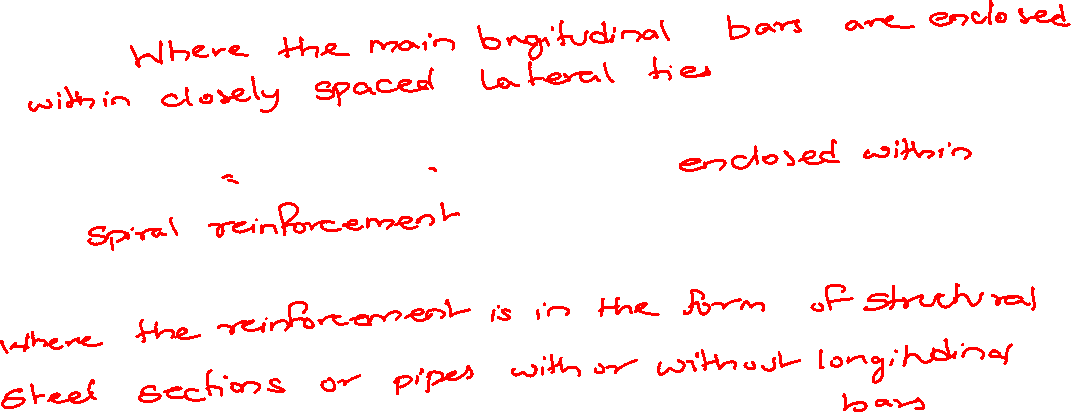 Where the main longitudinal bars are enclosed
within closely spaced lateral ties
enclosed within
spiral reinforcement
where the reinforcement is in the form of structural
steel sections or pipes with or without longitudinal
bars